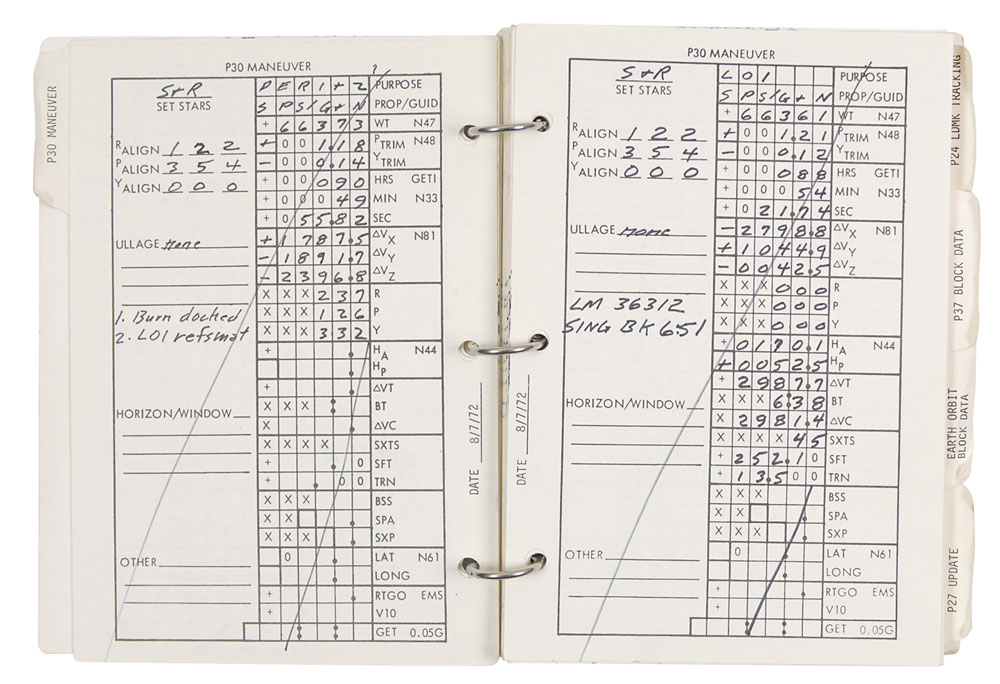 P30 MANEUVER
P30 MANEUVER
S+R
SET STARS
P E R I + 2 PURPOSE
S P S / G + N PROP/GUID
+ 6 6 3 7 3 WT N47
RALIGN 1 2 2
PALIGN 3 5 4
YALIGN 0 0 0
+ 0 0 1.1 8 PTRIM N48
- 0 0 0.1 4 YTRIM
+ 0 0 0 9 0 HRS GETI
+ 0 0 0 4 9 MIN N33
+ 0 5 5.8 2 SEC
ULLAGE None
+ 1 7 8 7.5 ΔVX N81
- 1 8 9 1.7 ΔVY
- 2 3 9 6.8 ΔVZ
X X X 2 3 7 R
X X X 1 2 6 P
X X X 3 3 2 Y
1. Burn docked
2. LOI refsmat
+ HA N44
HP
+ ΔVT
X X X BT
X ΔVC
HORIZON/WINDOW
X X X X SXTS
+ 0 SFT
+ 0 0 TRN
X X X BSS
X X SPA
X X X SXP
OTHER
0 LAT N61
LONG
+ RTGO EMS
+ V10
GET 0.05G
DATE 8/7/72
DATE 8/7/72
P30 MANEUVER
S+R
SET STARS
L O I PURPOSE
S P S / G + N PROP/GUID
+ 6 6 3 6 1 WT N47
RALIGN 1 2 2
PALIGN 3 5 4
YALIGN 0 0 0
+ 0 0 1.2 1 PTRIM N48
- 0 0 0.1 2 YTRIM
+ 0 0 0 8 8 HRS GETI
+ 0 0 0 5 4 MIN N33
+ 0 2 1.7 4 SEC
ULLAGE none
- 2 7 9 8.8 ΔVX N81
+ 1 0 4 4.9 ΔVY
- 0 0 4 2.5 ΔVZ
X X X 0 0 0 R
X X X 0 0 0 P
X X X 0 0 0 Y
LM 36312
SING BK 651
+ 0 1 7 0.1 HA N44
+ 0 0 5 2.5 HP
+ 2 9 8 7.7 ΔVT
X X X 6:3 8 BT
X 2 9 8 1.4 ΔVC
HORIZON/WINDOW
X X X X 4 5 SXTS
+ 2 5 2.1 0 SFT
+ 1 3.5 0 0 TRN
X X X BSS
X X SPA
X X X SXP
OTHER
0 LAT N61
LONG
+ RTGO EMS
+ V10
GET 0.05G
P24 LDMK TRACKING
P37 BLOCK DATA
EARTH ORBIT
BLOCK DATA
P27 UPDATE